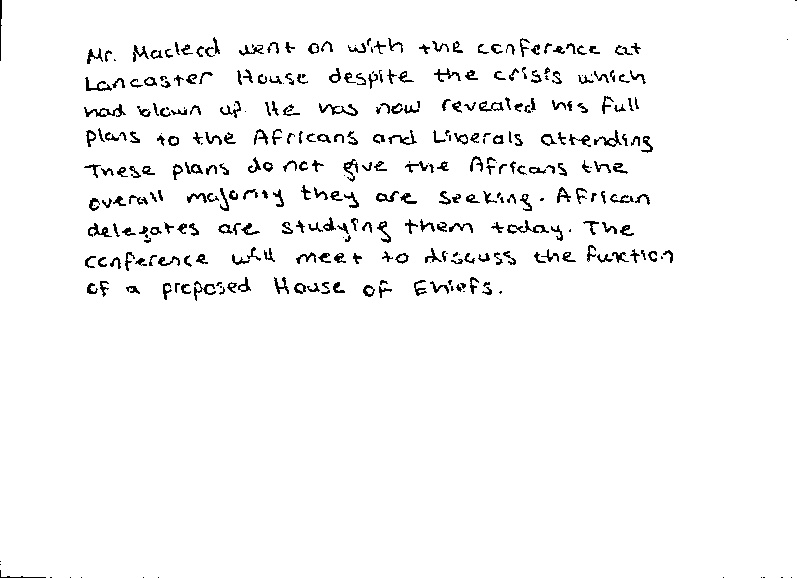 Mr. Macleod went on with the conference at
Lancaster House despite the crisis which
had blown up. He has now revealed his full
plans to the Africans and Liberals attending
These plans do not give the Africans the
overall majority they are seeking. African
delegates are studying them today. The
conference will meet to discuss the function
of a proposed House of Chiefs.